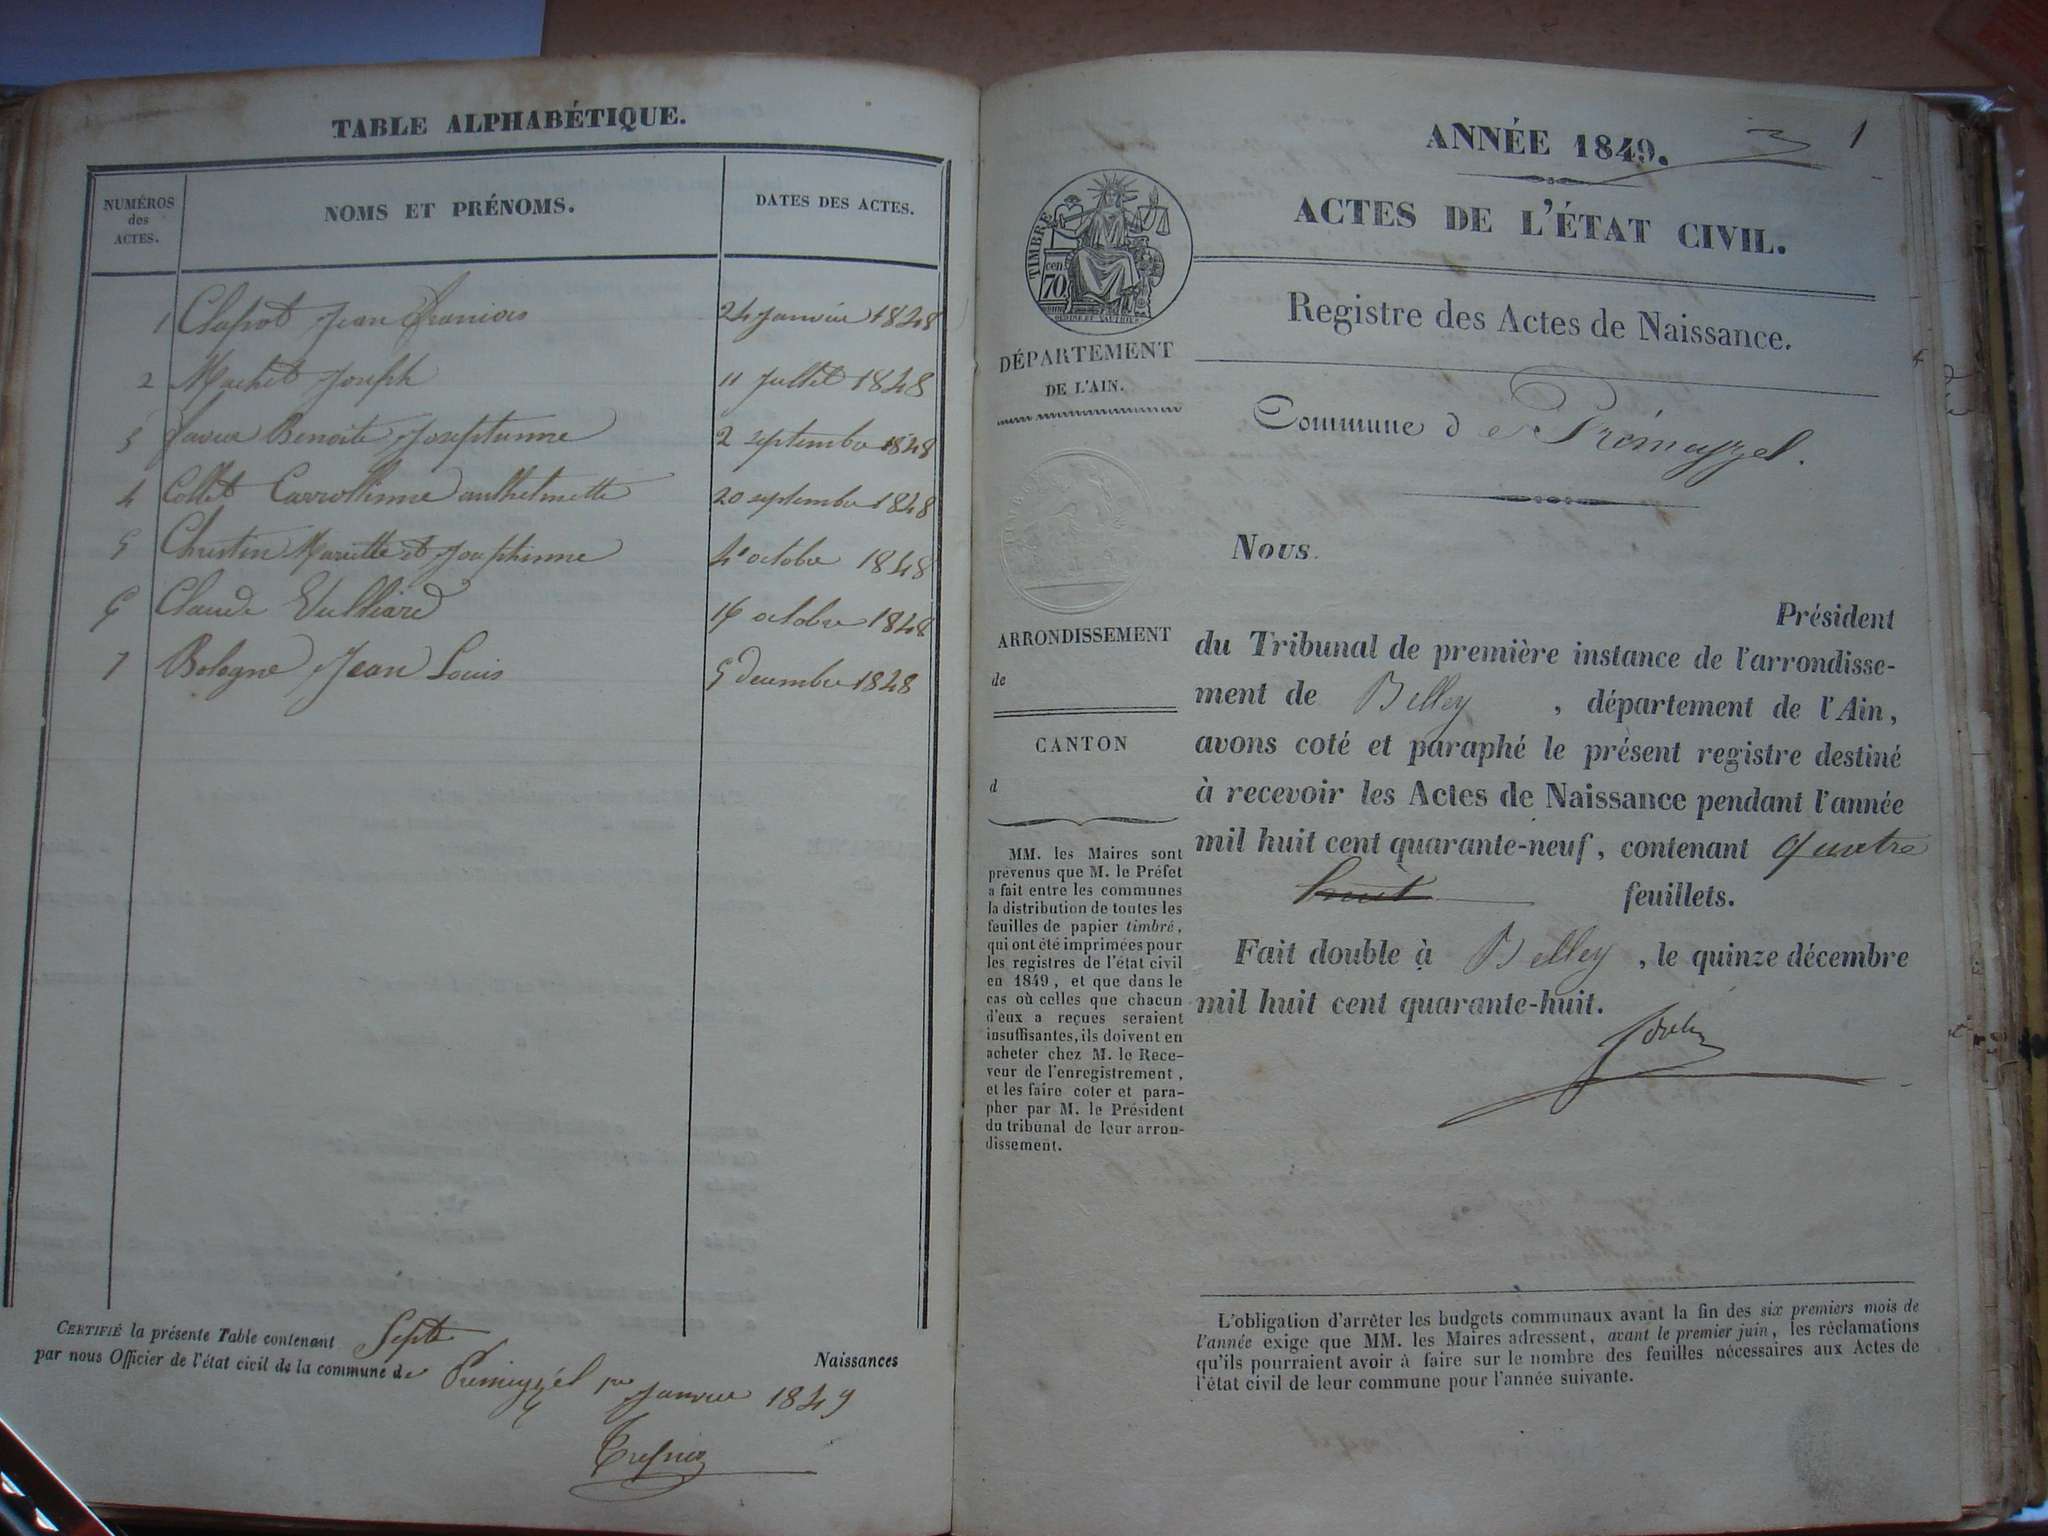 TABLE ALPHABÉTIQUE.
NUMÉROS des ACTES.
NOMS ET PRÉNOMS.
DATES DES ACTES.
1 Clapot Jean François 24 Janvier 1848
2 Machet Joseph 11 Jullet 1848
3 Benoite Josephinne 2 septembre 1848
4 Collet Carrollinne anthelmette 20 septembre 1848
5 Christin Mariette et Josephinne 4e octobre 1848
6 Claude Vulliard 16 octobre 1848
7 Bologne Jean Louis 5 decembre 1848
CERTIFIÉ la présente Table contenant Septe Naissances
par nous Officier de l'état civil de la commune de Prémeyzél 1er Janvier 1849
ANNÉE 1849.
1
ACTES DE L'ÉTAT CIVIL.
Registre des Actes de Naissance.
TIMBRE
70 cen
DÉPARTEMENT
DE L'AIN.
Commune d e Prémeyzel.
Nous
Président
du Tribunal de première instance de l'arrondisse-
ment de Belley, département de l'Ain,
avons coté et paraphé le présent registre destiné
à recevoir les Actes de Naissance pendant l'année
mil huit cent quarante-neuf, contenant quatre
huit feuillets.
Fait double à Belley, le quinze décembre
mil huit cent quarante-huit.
ARRONDISSEMENT
de
CANTON
d
MM. les Maires sont
prévenus que M. le Préfet
a fait entre les communes
la distribution de toutes les
feuilles de papier timbré,
qui ont été imprimées pour
les registres de l'état civil
en 1849, et que dans le
cas où celles que chacun
d'eux a reçues seraient
insuffisantes, ils doivent en
acheter chez M. le Rece-
veur de l'enregistrement,
et les faire coter et para-
pher par M. le Président
du tribunal de leur arron-
dissement.
L'obligation d'arrêter les budgets communaux avant la fin des six premiers mois de
l'année exige que MM. les Maires adressent, avant le premier juin, les réclamations
qu'ils pourraient avoir à faire sur le nombre des feuilles nécessaires aux Actes de
l'état civil de leur commune pour l'année suivante.